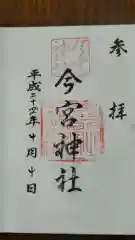 参拝
今宮神社
平成二十四年十月十日